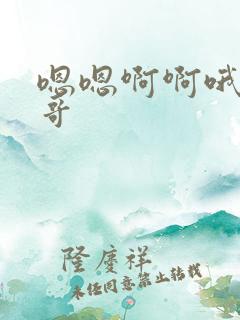 嗯嗯啊啊哦
哥
隆慶祥
未经同意禁止转载